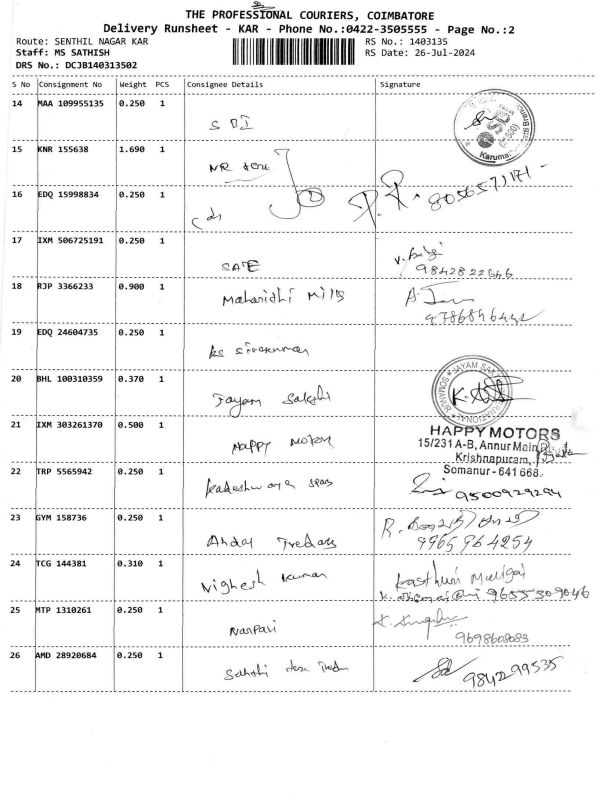 THE PROFESSIONAL COURIERS, COIMBATORE
Delivery Runsheet - KAR - Phone No.:0422-3505555 - Page No.:2
Route: SENTHIL NAGAR KAR RS No.: 1403135
Staff: MS SATHISH RS Date: 26-Jul-2024
DRS No.: DCJB140313502
S No Consignment No Weight PCS Consignee Details Signature
14 MAA 109955135 0.250 1 SBI
15 KNR 155638 1.690 1 NR
16 EDQ 15998834 0.250 1 8056571171
17 IXM 506725191 0.250 1
9842822646
18 RJP 3366233 0.900 1 Mahanidhi Mills
19 EDQ 24604735 0.250 1 KS Sivakumar
20 BHL 100310359 0.370 1 Jayam Sakthi JAYAM SAK
SOMANUR
21 IXM 303261370 0.500 1 Happy Motors HAPPY MOTORS
15/231 A-B, Annur Main
Krishnapuram,
Somanur - 641 668.
22 TRP 5565942 0.250 1 9500929294
23 GYM 158736 0.250 1 Traders
9965964254
24 TCG 144381 0.310 1 Vighesh Kumar Kasthuri
9655509046
25 MTP 1310261 0.250 1
9698608083
26 AMD 28920684 0.250 1 Sakthi 9842299535